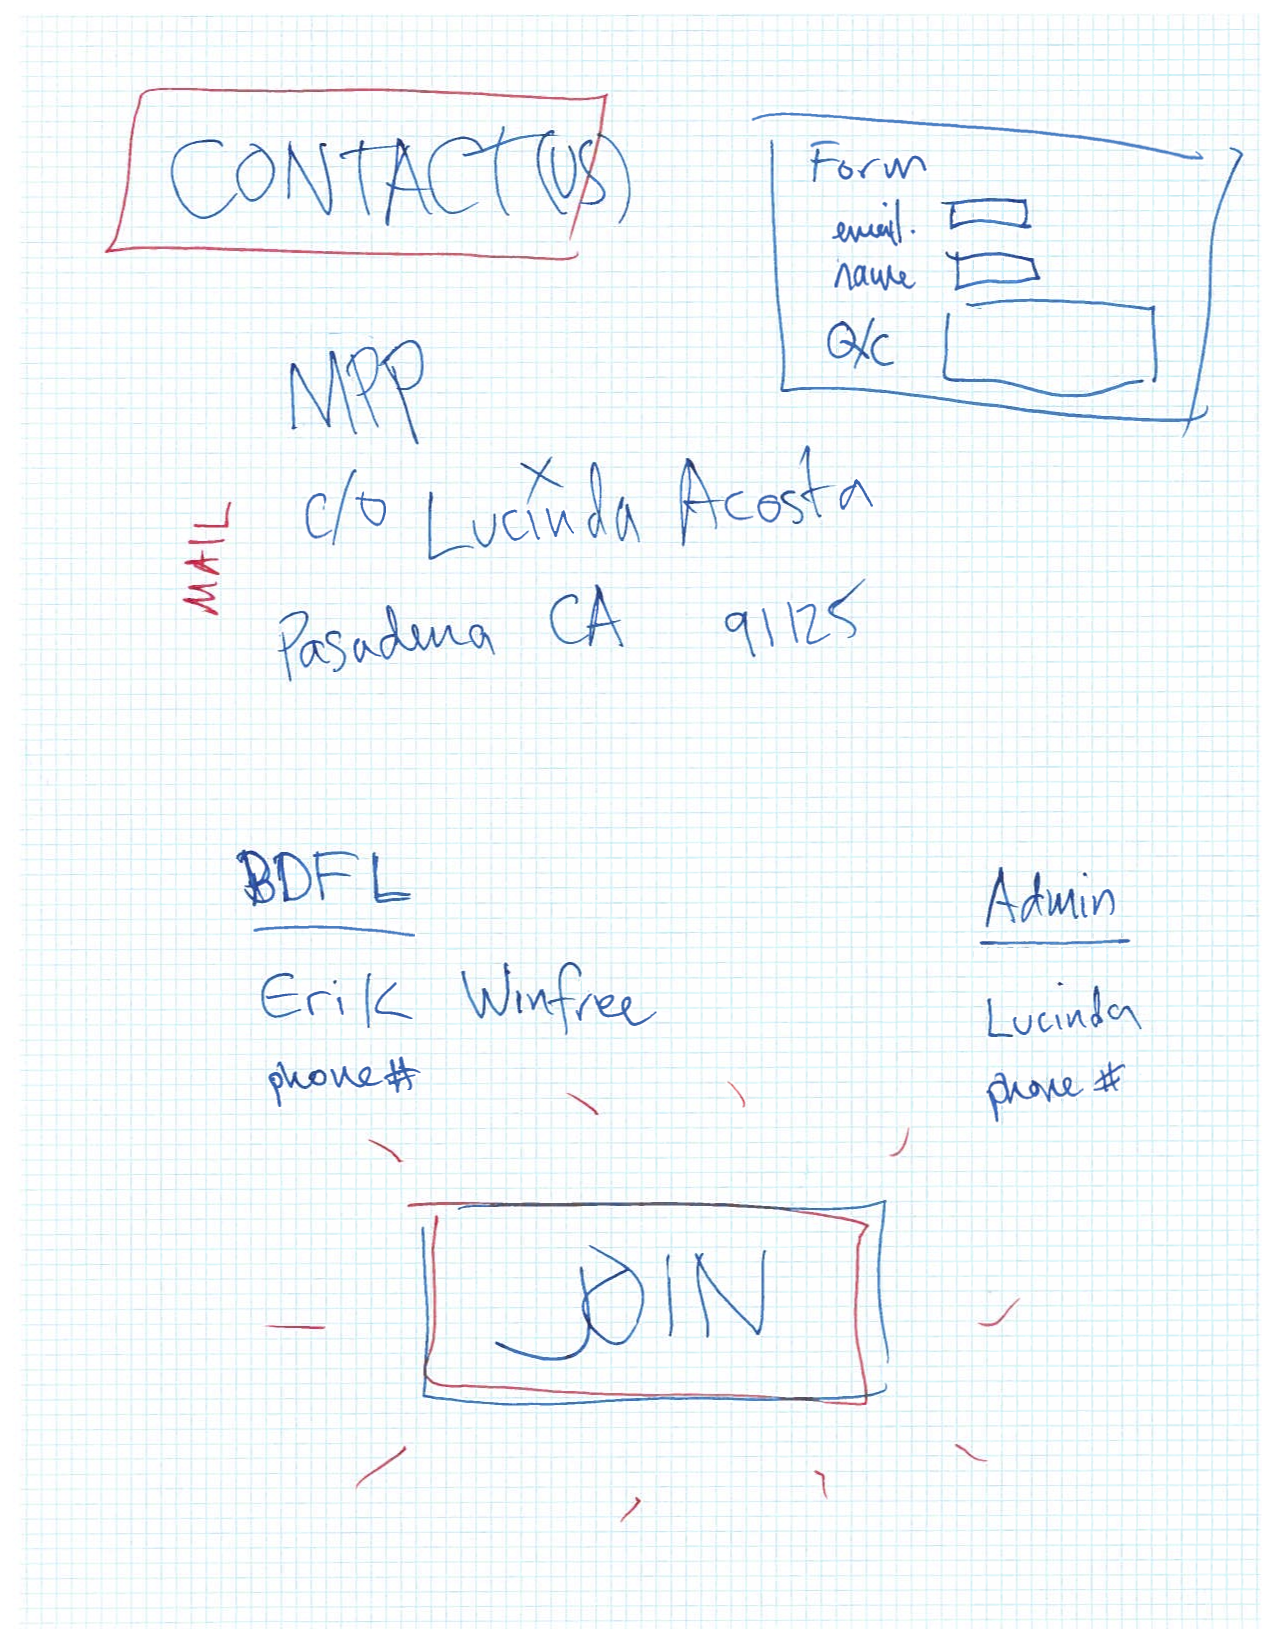 CONTACT (US)
Form
email.
name
Q/C
MPP
c/o Lucinda Acosta
Pasadena CA 91125
MAIL
BDFL
Erik Winfree
phone #
Admin
Lucinda
phone #
JOIN